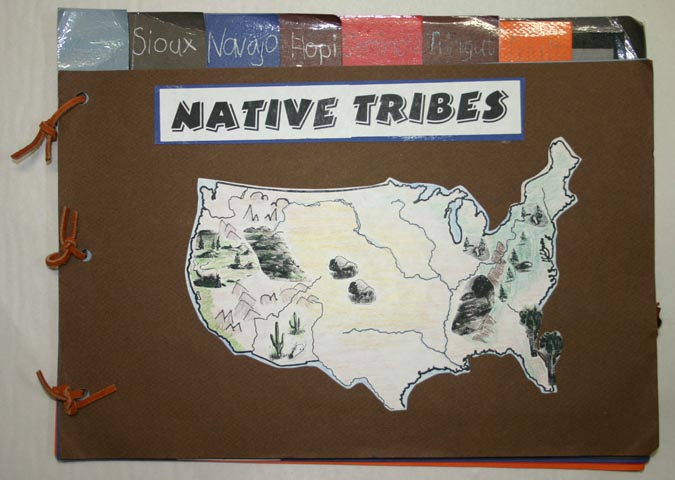 NATIVE TRIBES
Sioux
Navajo
Hopi